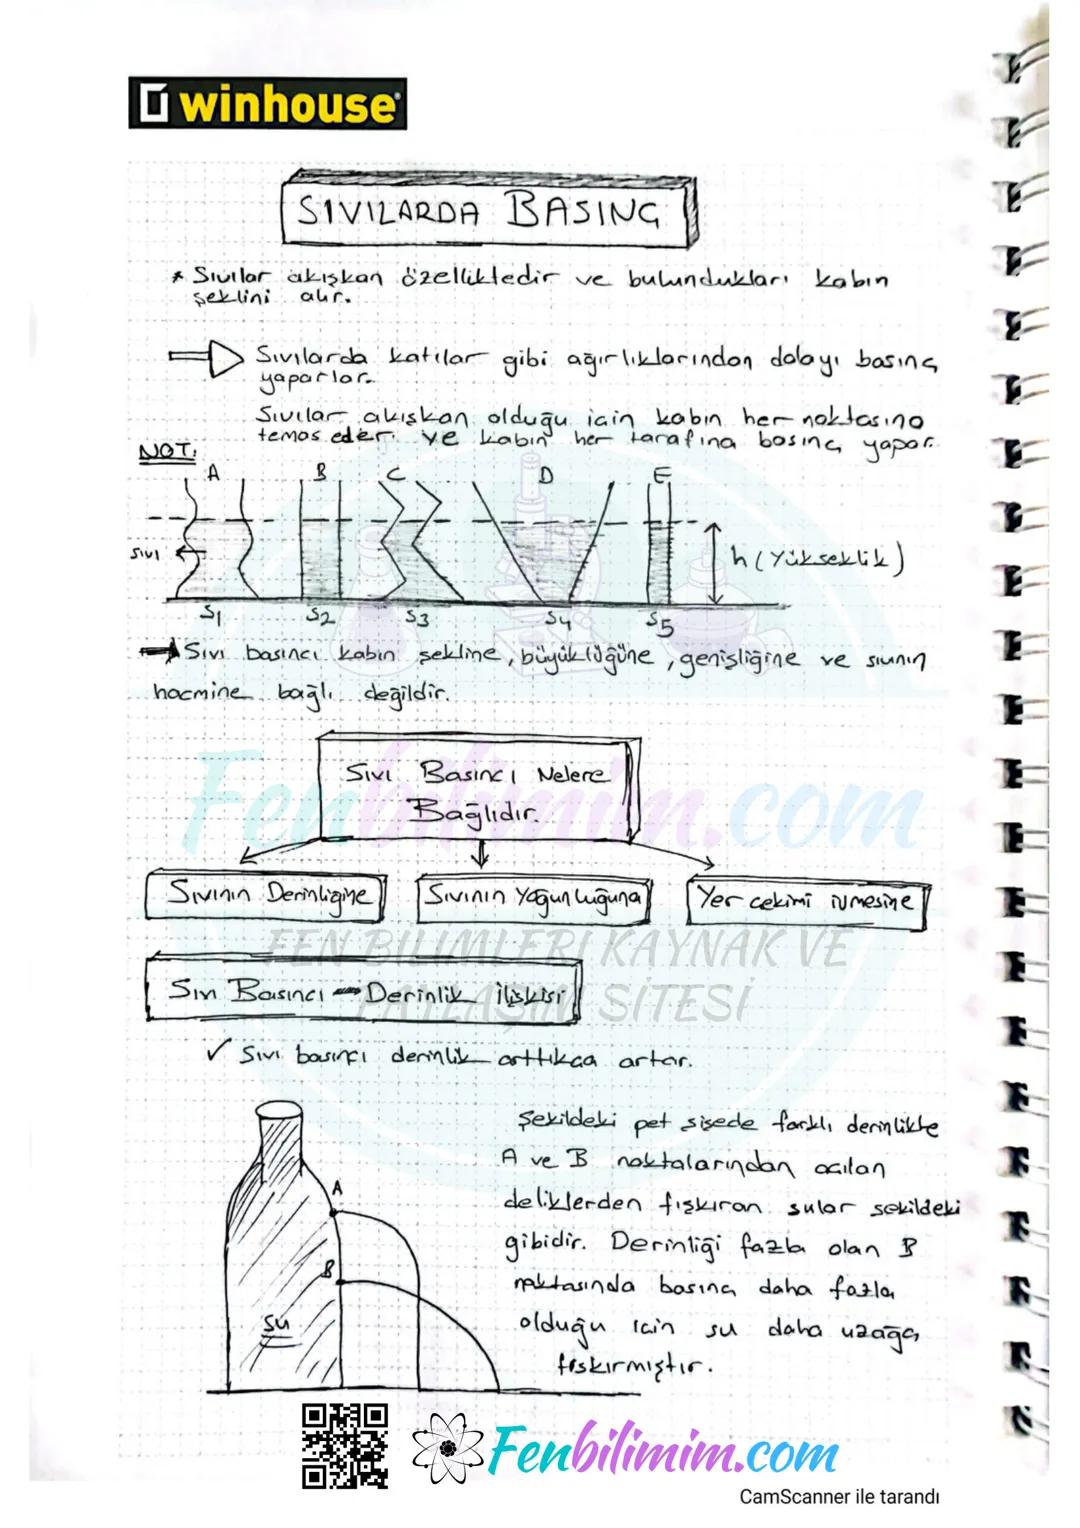 winhouse
SIVILARDA BASINÇ
* Sıvılar akışkan özelliktedir ve bulundukları kabın
şeklini alır.
Sıvılarda katılar gibi ağırlıklarından dolayı basınç
yaparlar.
Sıvılar akışkan olduğu için kabın her noktasına
temas eder ve kabın her tarafına basınç yapar.
NOT:
A B C D E
SIVI
h (Yükseklik)
S1 S2 S3 S4 S5
Sıvı basıncı kabın şekline, büyüklüğüne, genişliğine ve sıvının
hacmine bağlı değildir.
Sıvı Basıncı Nelere
Bağlıdır.
Sıvının Derinliğine
Sıvının Yoğunluğuna
Yer çekimi ivmesine
Fenbilimim.com
FEN BİLİMLERİ KAYNAK VE
PAYLAŞIM SİTESİ
Sıvı Basıncı - Derinlik ilişkisi
✓ Sıvı basıncı derinlik arttıkça artar.
Şekildeki pet şişede farklı derinlikte
A ve B noktalarından açılan
deliklerden fışkıran sular şekildeki
gibidir. Derinliği fazla olan B
noktasında basınç daha fazla
olduğu için su daha uzağa
fışkırmıştır.
A
B
Su
Fenbilimim.com
CamScanner ile tarandı